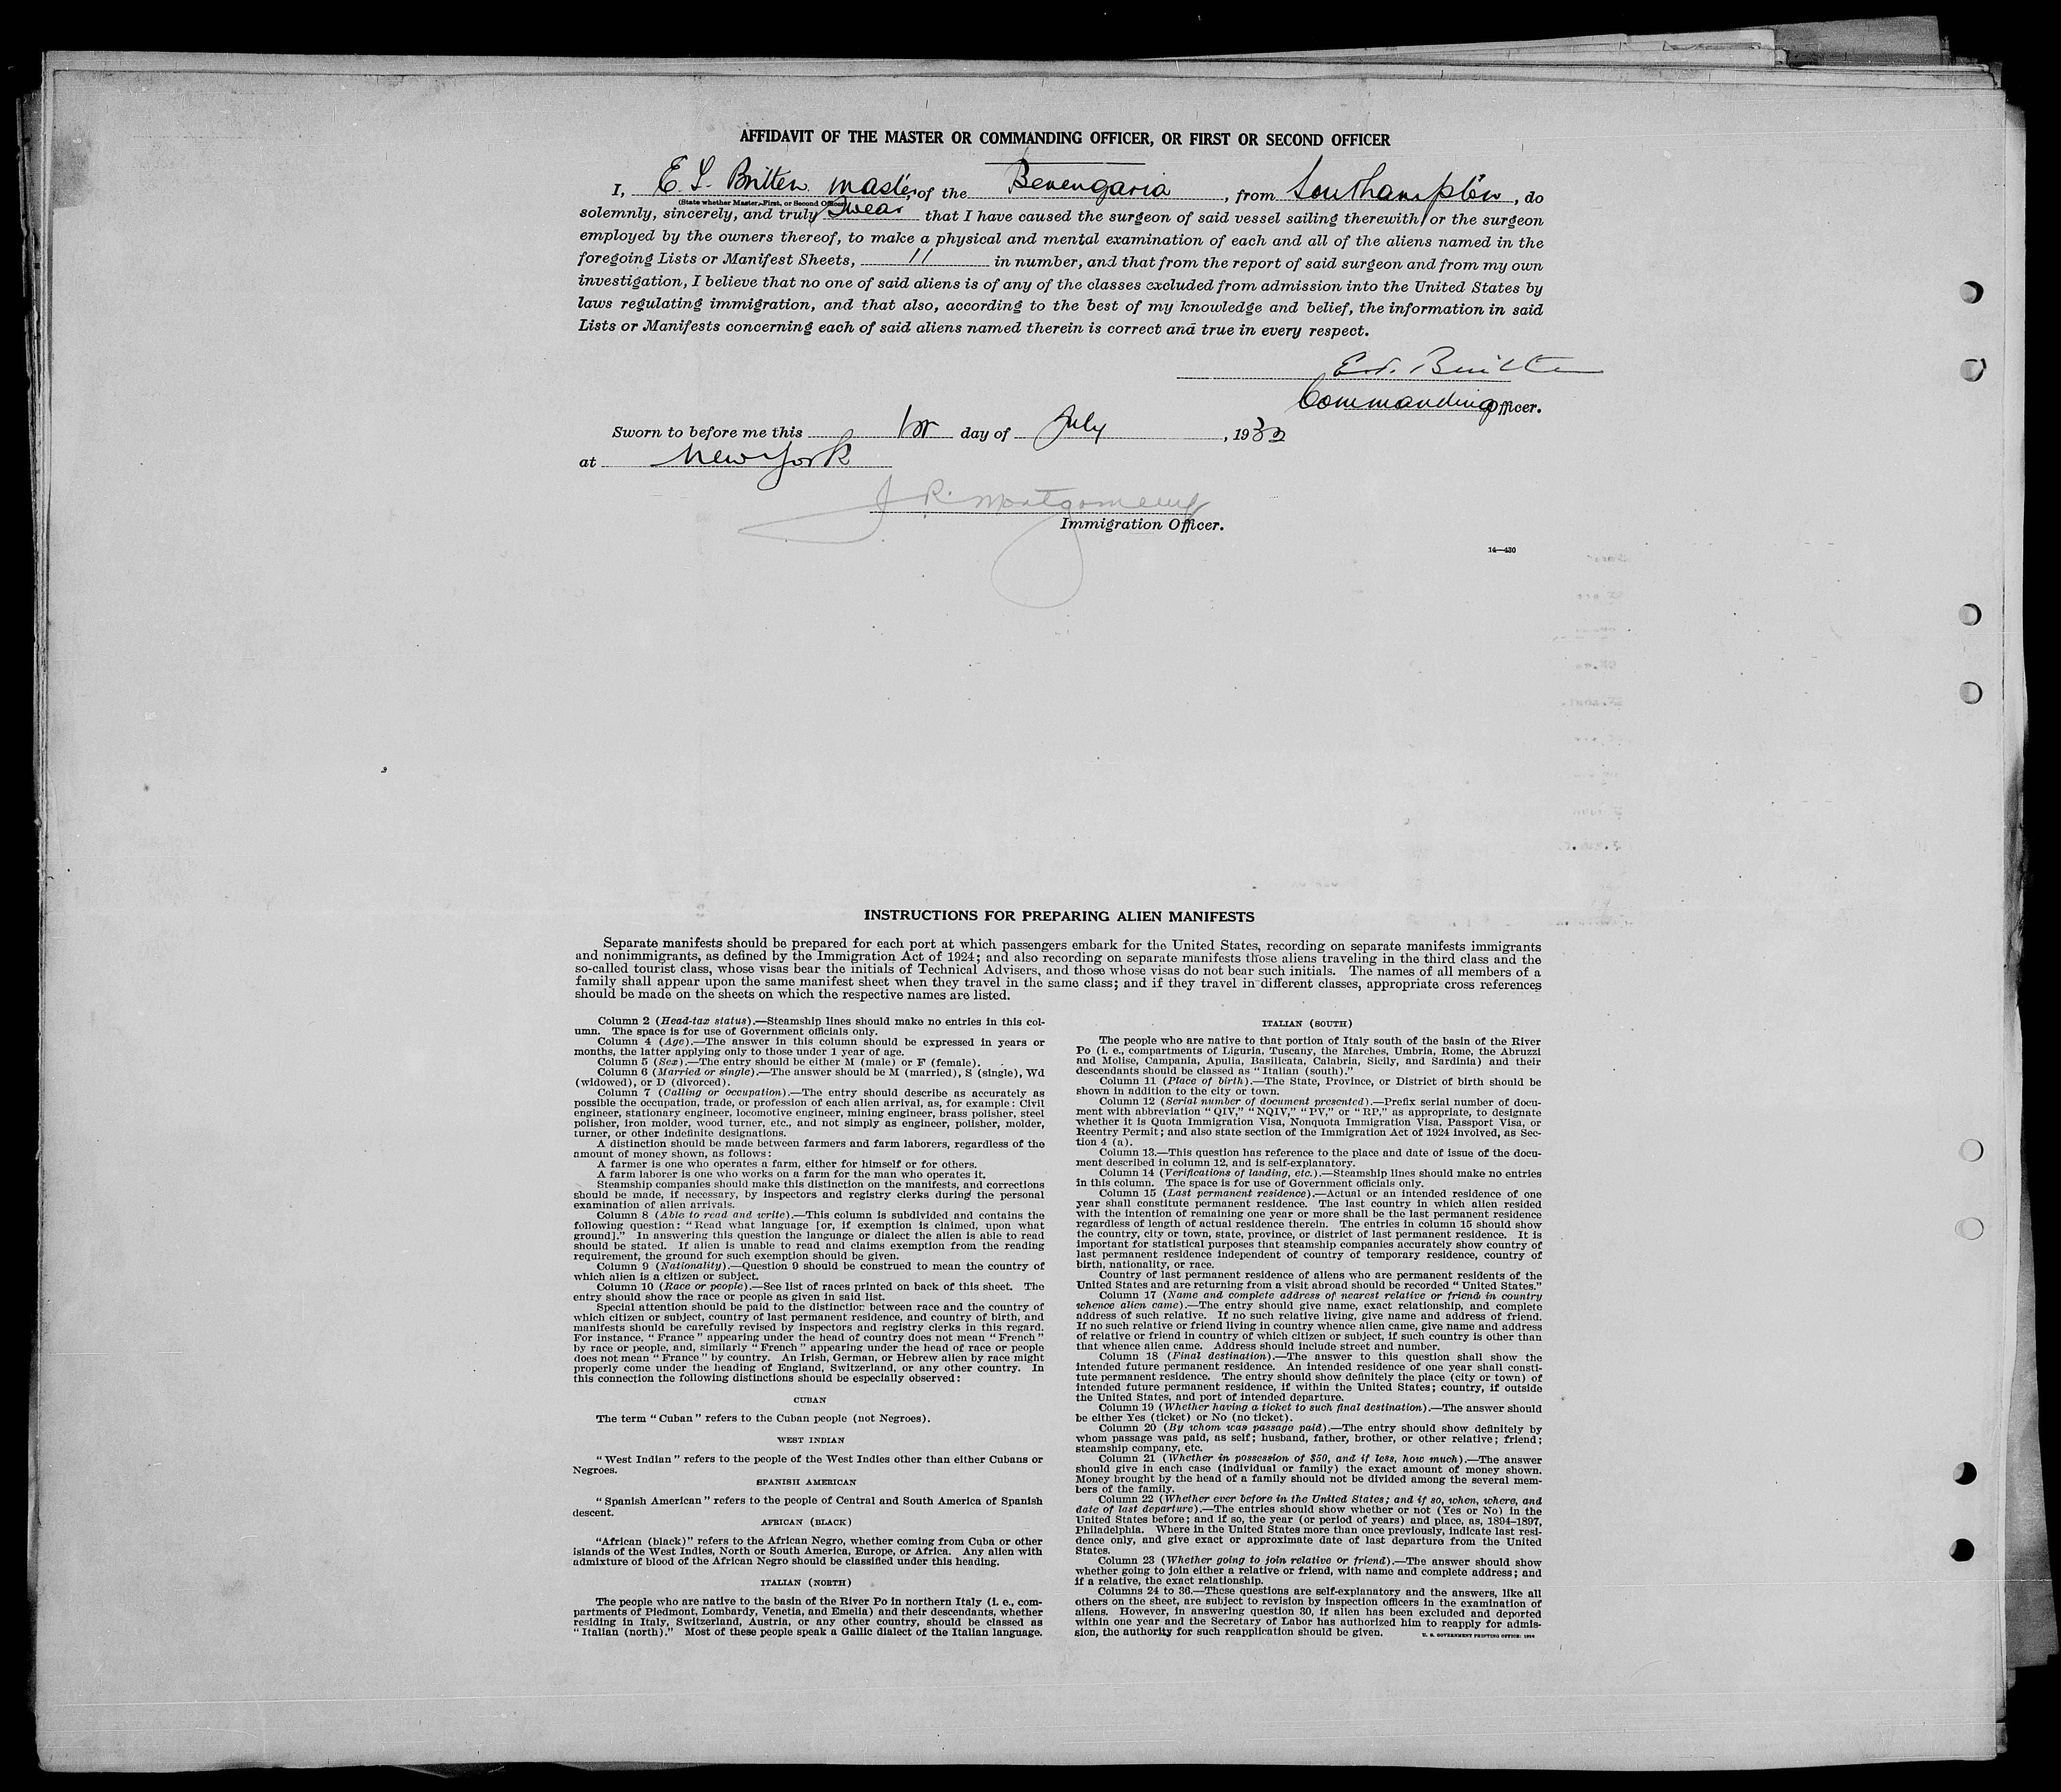 AFFIDAVIT OF THE MASTER OR COMMANDING OFFICER, OR FIRST OR SECOND OFFICER
I, E. T. Britten master, of the Berengaria, from Southampton, do
(State whether Master, First, or Second Officer)
solemnly, sincerely, and truly Swear that I have caused the surgeon of said vessel sailing therewith, or the surgeon
employed by the owners thereof, to make a physical and mental examination of each and all of the aliens named in the
foregoing Lists or Manifest Sheets, 11 in number, and that from the report of said surgeon and from my own
investigation, I believe that no one of said aliens is of any of the classes excluded from admission into the United States by
laws regulating immigration, and that also, according to the best of my knowledge and belief, the information in said
Lists or Manifests concerning each of said aliens named therein is correct and true in every respect.
E.T. Britten
Commanding Officer.
Sworn to before me this 1st day of July, 1932
at New York
J R. Montgomery
Immigration Officer.
14—430
INSTRUCTIONS FOR PREPARING ALIEN MANIFESTS
Separate manifests should be prepared for each port at which passengers embark for the United States, recording on separate manifests immigrants
and nonimmigrants, as defined by the Immigration Act of 1924; and also recording on separate manifests those aliens traveling in the third class and the
so-called tourist class, whose visas bear the initials of Technical Advisers, and those whose visas do not bear such initials. The names of all members of a
family shall appear upon the same manifest sheet when they travel in the same class; and if they travel in different classes, appropriate cross references
should be made on the sheets on which the respective names are listed.
Column 2 (Head-tax status).—Steamship lines should make no entries in this col-
umn. The space is for use of Government officials only.
Column 4 (Age).—The answer in this column should be expressed in years or
months, the latter applying only to those under 1 year of age.
Column 5 (Sex).—The entry should be either M (male) or F (female).
Column 6 (Married or single).—The answer should be M (married), S (single), Wd
(widowed), or D (divorced).
Column 7 (Calling or occupation).—The entry should describe as accurately as
possible the occupation, trade, or profession of each alien arrival, as, for example: Civil
engineer, stationary engineer, locomotive engineer, mining engineer, brass polisher, steel
polisher, iron molder, wood turner, etc., and not simply as engineer, polisher, molder,
turner, or other indefinite designations.
A distinction should be made between farmers and farm laborers, regardless of the
amount of money shown, as follows:
A farmer is one who operates a farm, either for himself or for others.
A farm laborer is one who works on a farm for the man who operates it.
Steamship companies should make this distinction on the manifests, and corrections
should be made, if necessary, by inspectors and registry clerks during the personal
examination of alien arrivals.
Column 8 (Able to read and write).—This column is subdivided and contains the
following question: "Read what language [or, if exemption is claimed, upon what
ground]." In answering this question the language or dialect the alien is able to read
should be stated. If alien is unable to read and claims exemption from the reading
requirement, the ground for such exemption should be given.
Column 9 (Nationality).—Question 9 should be construed to mean the country of
which alien is a citizen or subject.
Column 10 (Race or people).—See list of races printed on back of this sheet. The
entry should show the race or people as given in said list.
Special attention should be paid to the distinction between race and the country of
which citizen or subject, country of last permanent residence, and country of birth, and
manifests should be carefully revised by inspectors and registry clerks in this regard.
For instance, "France" appearing under the head of country does not mean "French"
by race or people, and, similarly "French" appearing under the head of race or people
does not mean "France" by country. An Irish, German, or Hebrew alien by race might
properly come under the heading of England, Switzerland, or any other country. In
this connection the following distinctions should be especially observed:
CUBAN
The term "Cuban" refers to the Cuban people (not Negroes).
WEST INDIAN
"West Indian" refers to the people of the West Indies other than either Cubans or
Negroes.
SPANISH AMERICAN
"Spanish American" refers to the people of Central and South America of Spanish
descent.
AFRICAN (BLACK)
"African (black)" refers to the African Negro, whether coming from Cuba or other
islands of the West Indies, North or South America, Europe, or Africa. Any alien with
admixture of blood of the African Negro should be classified under this heading.
ITALIAN (NORTH)
The people who are native to the basin of the River Po in northern Italy (i. e., com-
partments of Piedmont, Lombardy, Venetia, and Emelia) and their descendants, whether
residing in Italy, Switzerland, Austria, or any other country, should be classed as
"Italian (north)." Most of these people speak a Gallic dialect of the Italian language.
ITALIAN (SOUTH)
The people who are native to that portion of Italy south of the basin of the River
Po (i. e., compartments of Liguria, Tuscany, the Marches, Umbria, Rome, the Abruzzi
and Molise, Campania, Apulia, Basilicata, Calabria, Sicily, and Sardinia) and their
descendants should be classed as "Italian (south)."
Column 11 (Place of birth).—The State, Province, or District of birth should be
shown in addition to the city or town.
Column 12 (Serial number of document presented).—Prefix serial number of docu-
ment with abbreviation "QIV," "NQIV," "PV," or "RP," as appropriate, to designate
whether it is Quota Immigration Visa, Nonquota Immigration Visa, Passport Visa, or
Reentry Permit; and also state section of the Immigration Act of 1924 involved, as Sec-
tion 4 (a).
Column 13.—This question has reference to the place and date of issue of the docu-
ment described in column 12, and is self-explanatory.
Column 14 (Verifications of landing, etc.).—Steamship lines should make no entries
in this column. The space is for use of Government officials only.
Column 15 (Last permanent residence).—Actual or an intended residence of one
year shall constitute permanent residence. The last country in which alien resided
with the intention of remaining one year or more shall be the last permanent residence
regardless of length of actual residence therein. The entries in column 15 should show
the country, city or town, state, province, or district of last permanent residence. It is
important for statistical purposes that steamship companies accurately show country of
last permanent residence independent of country of temporary residence, country of
birth, nationality, or race.
Country of last permanent residence of aliens who are permanent residents of the
United States and are returning from a visit abroad should be recorded "United States."
Column 17 (Name and complete address of nearest relative or friend in country
whence alien came).—The entry should give name, exact relationship, and complete
address of such relative. If no such relative living, give name and address of friend.
If no such relative or friend living in country whence alien came, give name and address
of relative or friend in country of which citizen or subject, if such country is other than
that whence alien came. Address should include street and number.
Column 18 (Final destination).—The answer to this question shall show the
intended future permanent residence. An intended residence of one year shall consti-
tute permanent residence. The entry should show definitely the place (city or town) of
intended future permanent residence, if within the United States; country, if outside
the United States, and port of intended departure.
Column 19 (Whether having a ticket to such final destination).—The answer should
be either Yes (ticket) or No (no ticket).
Column 20 (By whom was passage paid).—The entry should show definitely by
whom passage was paid, as self; husband, father, brother, or other relative; friend;
steamship company, etc.
Column 21 (Whether in possession of $50, and if less, how much).—The answer
should give in each case (individual or family) the exact amount of money shown.
Money brought by the head of a family should not be divided among the several mem-
bers of the family.
Column 22 (Whether ever before in the United States; and if so, when, where, and
date of last departure).—The entries should show whether or not (Yes or No) in the
United States before; and if so, the year (or period of years) and place, as, 1894–1897,
Philadelphia. Where in the United States more than once previously, indicate last resi-
dence only, and give exact or approximate date of last departure from the United
States.
Column 23 (Whether going to join relative or friend).—The answer should show
whether going to join either a relative or friend, with name and complete address; and
if a relative, the exact relationship.
Columns 24 to 36.—These questions are self-explanatory and the answers, like all
others on the sheet, are subject to revision by inspection officers in the examination of
aliens. However, in answering question 30, if alien has been excluded and deported
within one year and the Secretary of Labor has authorized him to reapply for admis-
sion, the authority for such reapplication should be given.
U. S. GOVERNMENT PRINTING OFFICE: